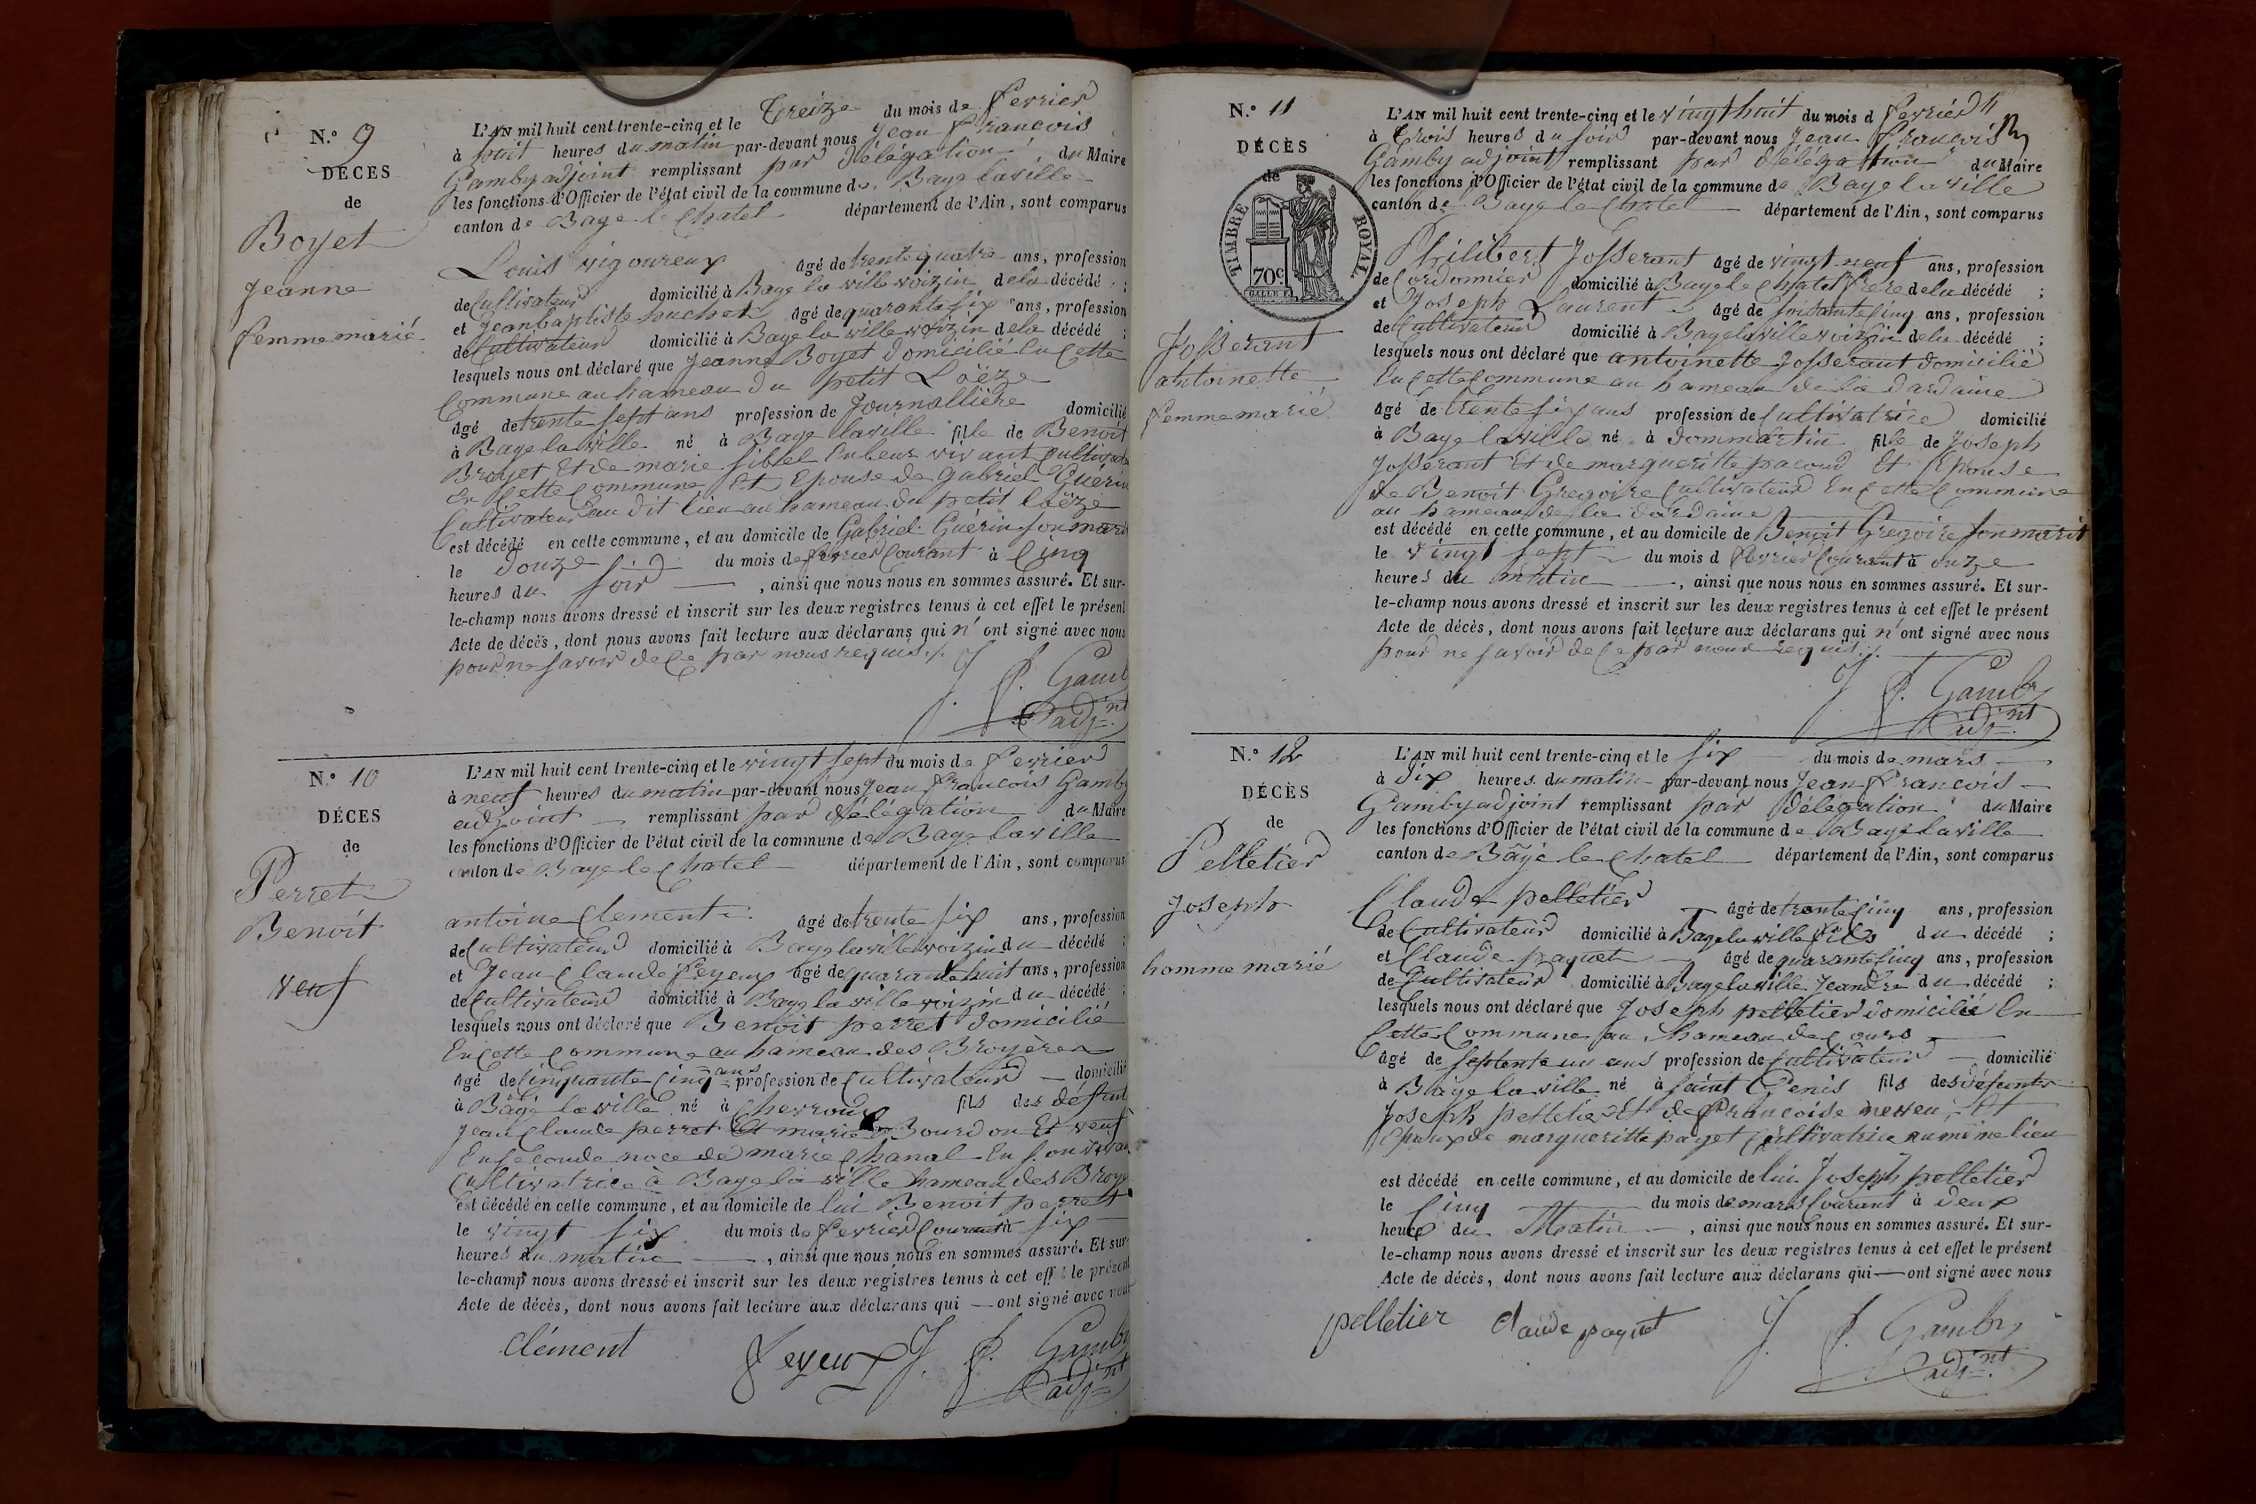 N.° 9
DÉCES
de
Boyet
Jeanne
femme marié
L'AN mil huit cent trente-cinq et le Treize du mois de fevrier
à huit heures du matin par-devant nous Jean François
Gamby adjoint remplissant par délégation du Maire
les fonctions d'Officier de l'état civil de la commune de Bage la ville
canton de Bage le Chatel département de l'Ain, sont comparus
Louis vigoureux âgé de trente quatre ans, profession
de Cultivateur domicilié à Bage la ville voizin de la décédé ;
et Jean baptiste âgé de quarante six ans, profession
de Cultivateur domicilié à Bage la ville voizin de la décédé ;
lesquels nous ont déclaré que Jeanne Boyet domicilié en Cette
Commune au hameau du petit Loëze
âgé de trente sept ans profession de Journallière domicilié
à Bage la ville né à Bage la ville fille de Benoit
Broyet Et de marie sibel En leur vivant Cultivat
en Cette Commune Et Epouse de Gabriel Guérin
Cultivateur au dit lieu au hameau du petit Loëze
est décédé en cette commune, et au domicile de Gabriel Guérin son mari
le douze du mois de fevrier Courant à Cinq
heures du soir , ainsi que nous nous en sommes assuré. Et sur-
le-champ nous avons dressé et inscrit sur les deux registres tenus à cet effet le présent
Acte de décès, dont nous avons fait lecture aux déclarans qui n'ont signé avec nous
pour ne savoir de Ce par nous requis ./.
J. f. Gamby
adj.nt
N.° 10
DÉCES
de
Perret
Benoit
veuf
L'AN mil huit cent trente-cinq et le vingt sept du mois de fevrier
à neuf heures du matin par-devant nous Jean François Gamby
adjoint remplissant par délégation du Maire
les fonctions d'Officier de l'état civil de la commune de Bage la ville
canton de Bage le Chatel département de l'Ain, sont comparus
antoine Clement âgé de trente six ans, profession
de Cultivateur domicilié à Bage la ville voizin du décédé ;
et Jean Claude feyeux âgé de quarante huit ans, profession
de Cultivateur domicilié à Bage la ville voizin du décédé ;
lesquels nous ont déclaré que Benoit perret domicilié
En Cette Commune au hameau des Broyères
âgé de Cinquante Cinq ans profession de Cultivateur domicilié
à Bâgé la ville né à Chevroux fils des défunt
Jean Claude perret Et marie Bourdon Et veuf
En seconde noce de marie Chanal En son vivan
Cultivatrice à Bage la ville hameau des Broye
est décédé en cette commune, et au domicile de lui Benoit perret
le vingt six du mois de fevrier Courant à six
heures du matin , ainsi que nous nous en sommes assuré. Et sur-
le-champ nous avons dressé et inscrit sur les deux registres tenus à cet effet le présent
Acte de décès, dont nous avons fait lecture aux déclarans qui ont signé avec nous
clément feyeux J. f. Gamby
adj.nt
N.° 11
DÉCÈS
de
TIMBRE ROYAL
70c
Josserant
antoinette
femme marié
L'AN mil huit cent trente-cinq et le vingt huit du mois d fevrier
à trois heures du soir par-devant nous Jean François
Gamby adjoint remplissant par délégation du Maire
les fonctions d'Officier de l'état civil de la commune de Bage la ville
canton de Bage le Chatel département de l'Ain, sont comparus
Philibert Josserant âgé de vingt neuf ans, profession
de Cordonnier domicilié à Bage le Chatel frere de la décédé ;
et Joseph Laurent âgé de soixante Cinq ans, profession
de Cultivateur domicilié à Bage la ville voizin de la décédé ;
lesquels nous ont déclaré que antoinette Josserant domicilié
En Cette Commune au hameau de la dardaine
âgé de trente six ans profession de Cultivatrice domicilié
à Bage la ville né à dommartin fille de Joseph
Josserant Et de margueritte pacoud Et Epouse
de Benoit Gregoire Cultivateur En Cette Commune
au hameau de la dardaine
est décédé en cette commune, et au domicile de Benoit Gregoire son marit
le vingt sept du mois d fevrier Courant à onze
heures du matin , ainsi que nous nous en sommes assuré. Et sur-
le-champ nous avons dressé et inscrit sur les deux registres tenus à cet effet le présent
Acte de décès, dont nous avons fait lecture aux déclarans qui n'ont signé avec nous
pour ne savoir de Ce par nous requis ./.
J. f. Gamby
adj.nt
N.° 12
DÉCÈS
de
Pelletier
Joseph
homme marié
L'AN mil huit cent trente-cinq et le six du mois de mars
à dix heures du matin par-devant nous Jean François
Gamby adjoint remplissant par délégation du Maire
les fonctions d'Officier de l'état civil de la commune de Bagé la ville
canton de Bâgé le Chatel département de l'Ain, sont comparus
Claude pelletier âgé de trente Cinq ans, profession
de Cultivateur domicilié à Bage la ville fils du décédé ;
et Claude paquet âgé de quarante Cinq ans, profession
de Cultivateur domicilié à Bage la ville Jeandre du décédé ;
lesquels nous ont déclaré que Joseph pelletier domicilié En
Cette Commune au hameau de Cours
âgé de septente un ans profession de Cultivateur domicilié
à Bâge la ville né à saint Genis fils des défunts
Joseph pelletier Et de françoise neveu Et
Epoux de margueritte paget Cultivatrice au même lieu
est décédé en cette commune, et au domicile de lui Joseph pelletier
le Cinq du mois de mars Courant à deux
heure du Matin , ainsi que nous nous en sommes assuré. Et sur-
le-champ nous avons dressé et inscrit sur les deux registres tenus à cet effet le présent
Acte de décès, dont nous avons fait lecture aux déclarans qui ont signé avec nous
pelletier Claude paquet J. f. Gamby
adj.nt